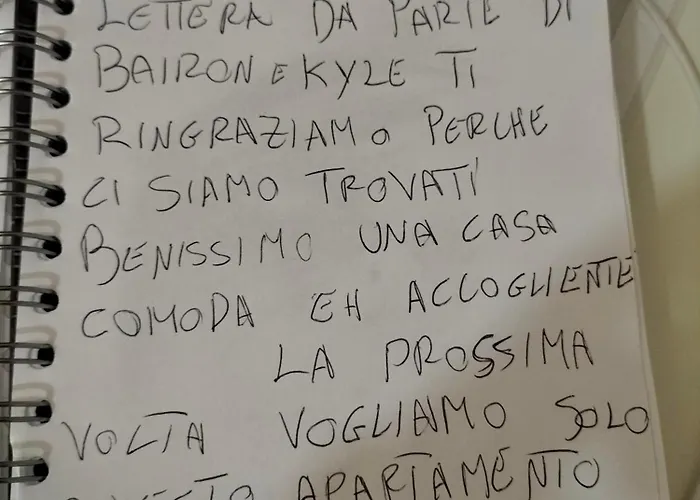 LETTERA DA PARTE DI
BAIRON e KYLE TI
RINGRAZIAMO PERCHE
CI SIAMO TROVATI
BENISSIMO UNA CASA
COMODA EH ACCOGLIENTE
LA PROSSIMA
VOLTA VOGLIAMO SOLO
APARTAMENTO